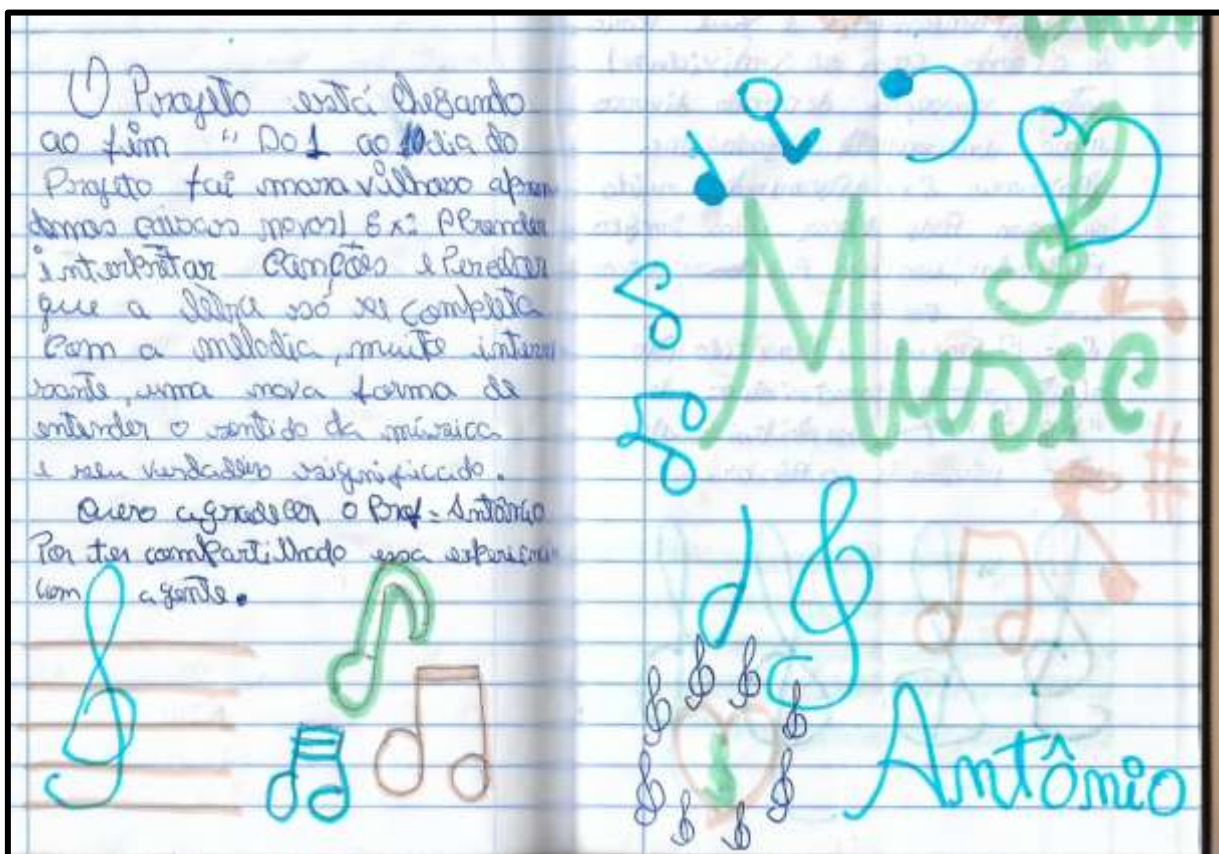 O Projeto está chegando
ao fim " Do 1 ao 10 dia do
Projeto foi maravilhoso apren
demos coisas novas! Ex: Aprender
interpretar Canções e Perceber
que a letra só se completa
com a melodia, muito interes
sante, uma nova forma de
entender o sentido da música
e seu verdadeiro significado.
Quero agradecer o Prof= Antônio
Por ter compartilhado essa
com a gente.
Music
Antônio